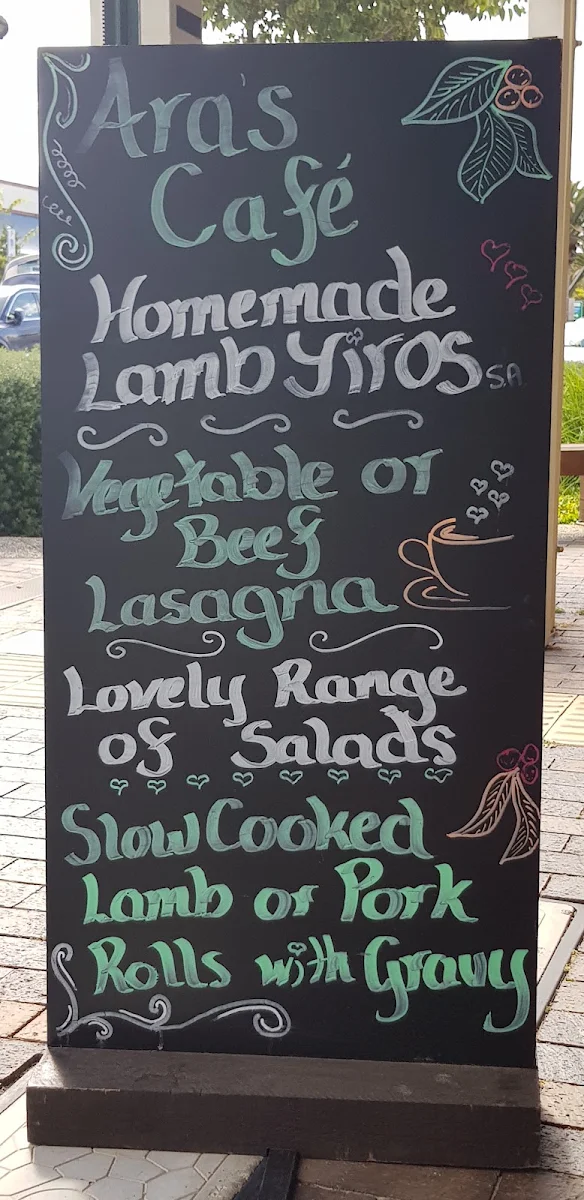 Ara's
Café
Homemade
Lamb Yiros S.A
Vegetable or
Beef
Lasagna
Lovely Range
of Salads
Slow Cooked
Lamb or Pork
Rolls with Gravy